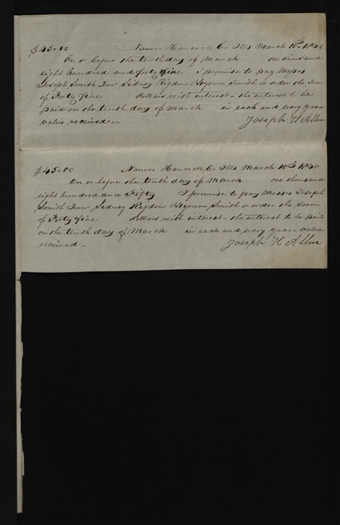 $45.00 Nauvoo Hancock Co Ills March 10th 1840
On or before the tenth day of March one thousand
eight hundred and forty nine I promise to pay Messrs
Joseph Smith Jun Sidney Rigdon Hyrum Smith or order the sum
of Forty Five dollars with interest the interest to be
paid on the tenth day of March in each and evry year
value received
Joseph H Allen
$45.00 Nauvoo Hancock Co Ills March 10th 1840
On or before the tenth day of March one thousand
eight hundred and Fifty I promise to pay Messrs Joseph
Smith Jun Sidney Rigdon Hyrum Smith or order the sum
of Forty Five dollars with interest the interest to be paid
on the tenth day of March in each and evry year value
received
Joseph H Allen